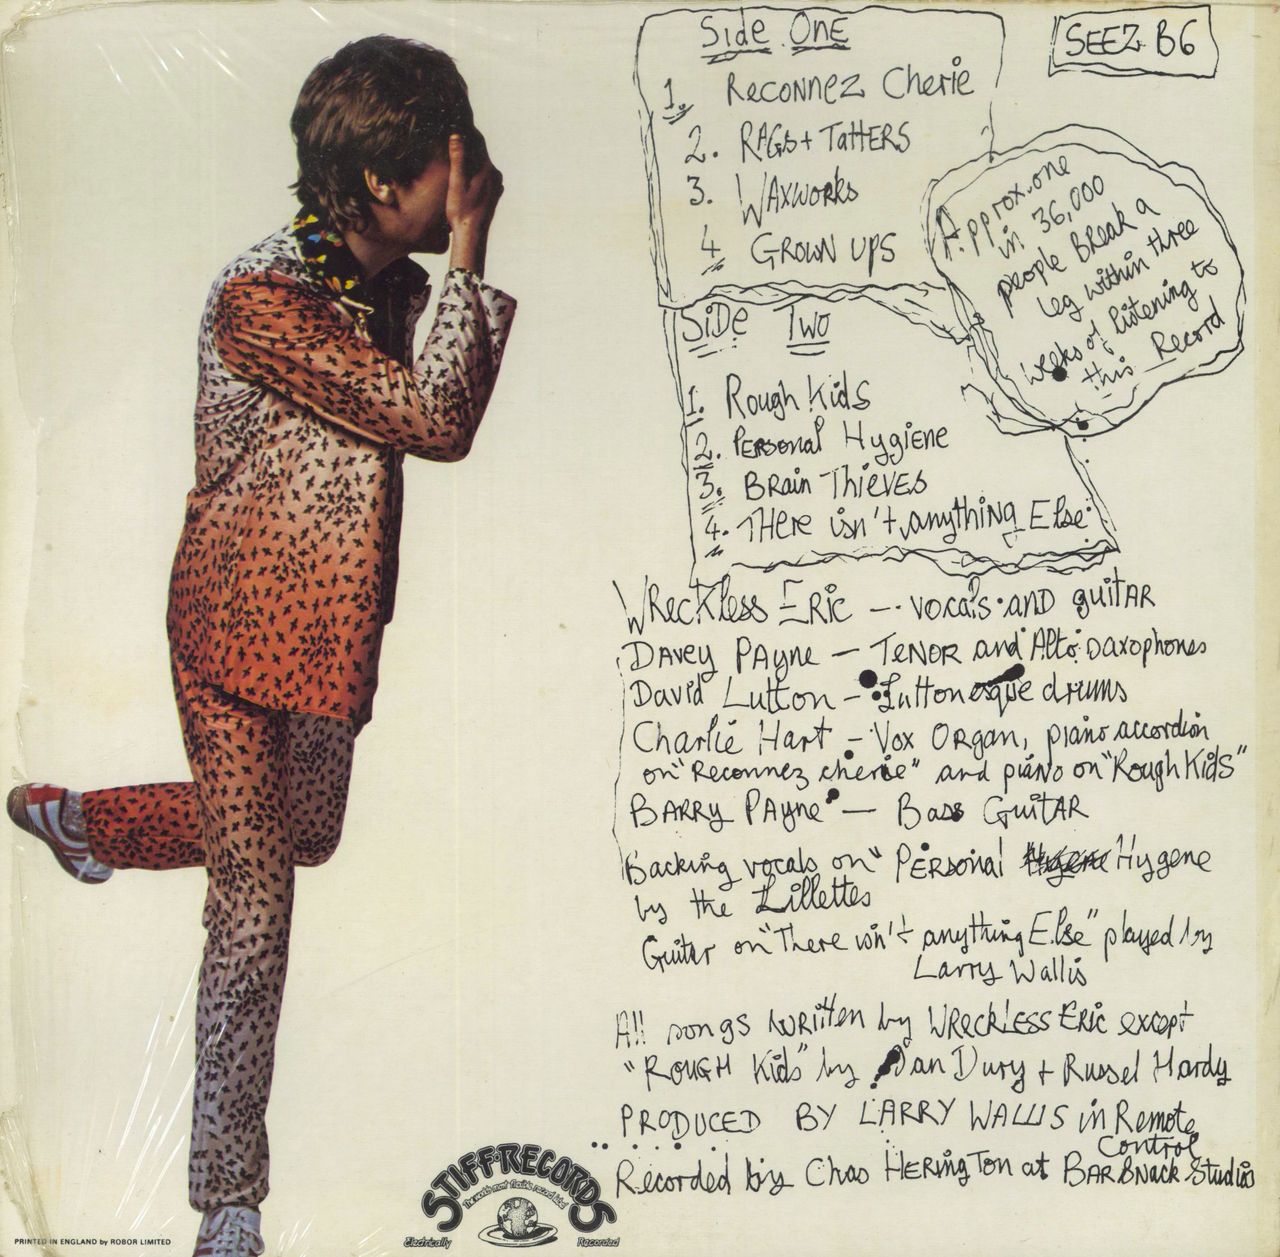 Side One
1. Reconnez Cherie
2. Rags + Tatters
3. Waxworks
4 Grown ups
SEEZ B6
Approx. one
in 36,000
people Break a
leg within three
weeks of listening to
this Record
Side Two
1. Rough Kids
2. Personal Hygiene
3. Brain Thieves
4. There isn't anything Else
Wreckless Eric — vocals and guitar
Davey Payne — Tenor and Alto Saxophones
David Lutton — Luttonesque drums
Charlie Hart — Vox Organ, piano accordion
on "Reconnez cherie" and piano on "Rough Kids"
Barry Payne — Bass Guitar
Backing vocals on "Personal Hygene
by the Lillettes
Guitar on "There isn't anything Else" played by
Larry Wallis
All songs written by Wreckless Eric except
"Rough Kids" by Ian Dury + Russel Hardy
PRODUCED BY LARRY WALLIS in Remote
Control
Recorded by Chas Herington at Bar Bnack Studios
STIFF·RECORDS
The worlds most flexible record label
Electrically Recorded
PRINTED IN ENGLAND by ROBOR LIMITED